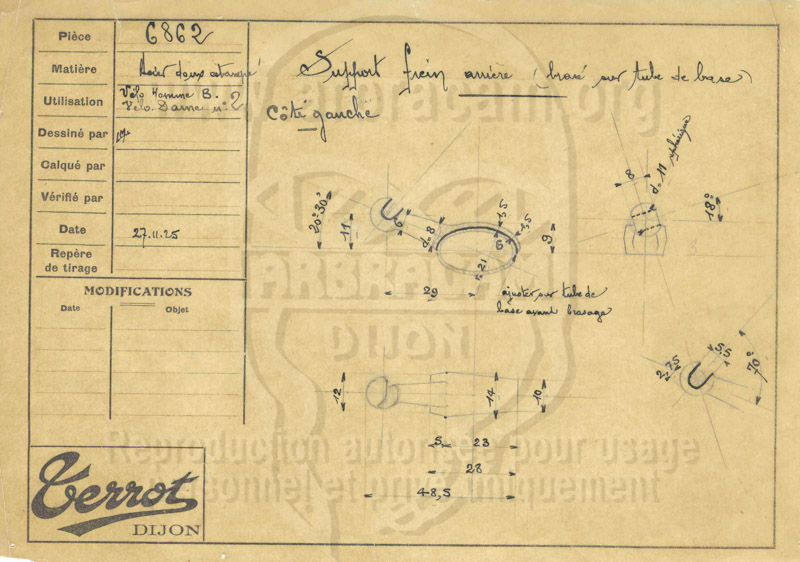 Pièce 6862
Matière Acier doux estampé
Utilisation Vélo Homme B.
Vélo Dame n° 2
Dessiné par
Calqué par
Vérifié par
Date 27.11.25
Repère
de tirage
MODIFICATIONS
Date Objet
Terrot
DIJON
Support frein arrière (brasé sur tube de base)
Côté gauche
20°30'
11
6
d=8
1,5
3,5
6
9
21
29
ajuster sur tube de
base avant brasage
8
d=11 sphérique
18°
12
14
10
5 23
28
48,5
2,75
5,5
70°
abracam.org
DIJON
Reproduction autorisée pour usage
personnel et privé uniquement